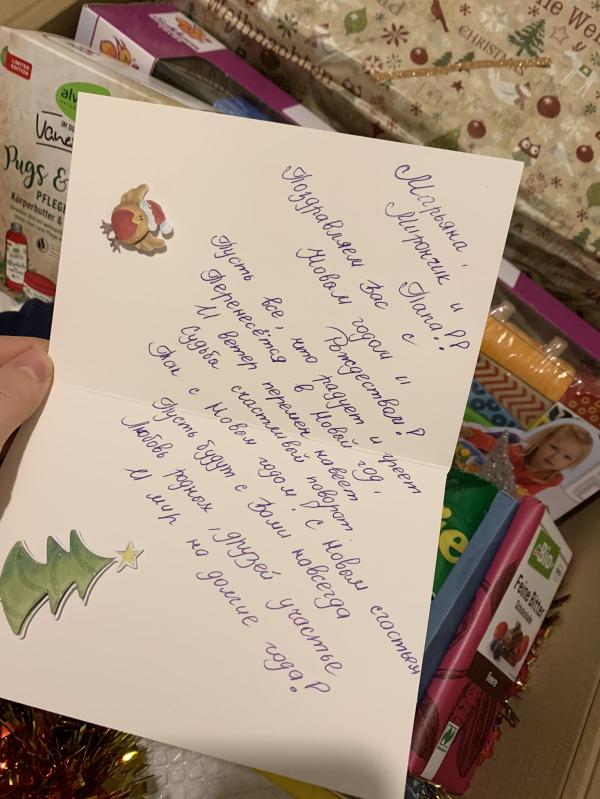 Weihnachten
CHRISTMAS
LIMITED
EDITION
alv
Vane
Pugs &
PFLEGE
Körperbutter &
Марьяна,
Мирончик и
Папа!!
Поздравляем Вас с
Новым годом и
Рождеством!
Пусть все, что радует и греет
Перенесётся в Новый год,
И ветер перемен навеет
Судьба счастливый поворот.
Так с Новым годом! С Новым счастьем
Пусть будут с Вами навсегда
Любовь родных, друзей участье
И мир на долгие года!
Bio
Feine Bitter
Schokolade
Beere